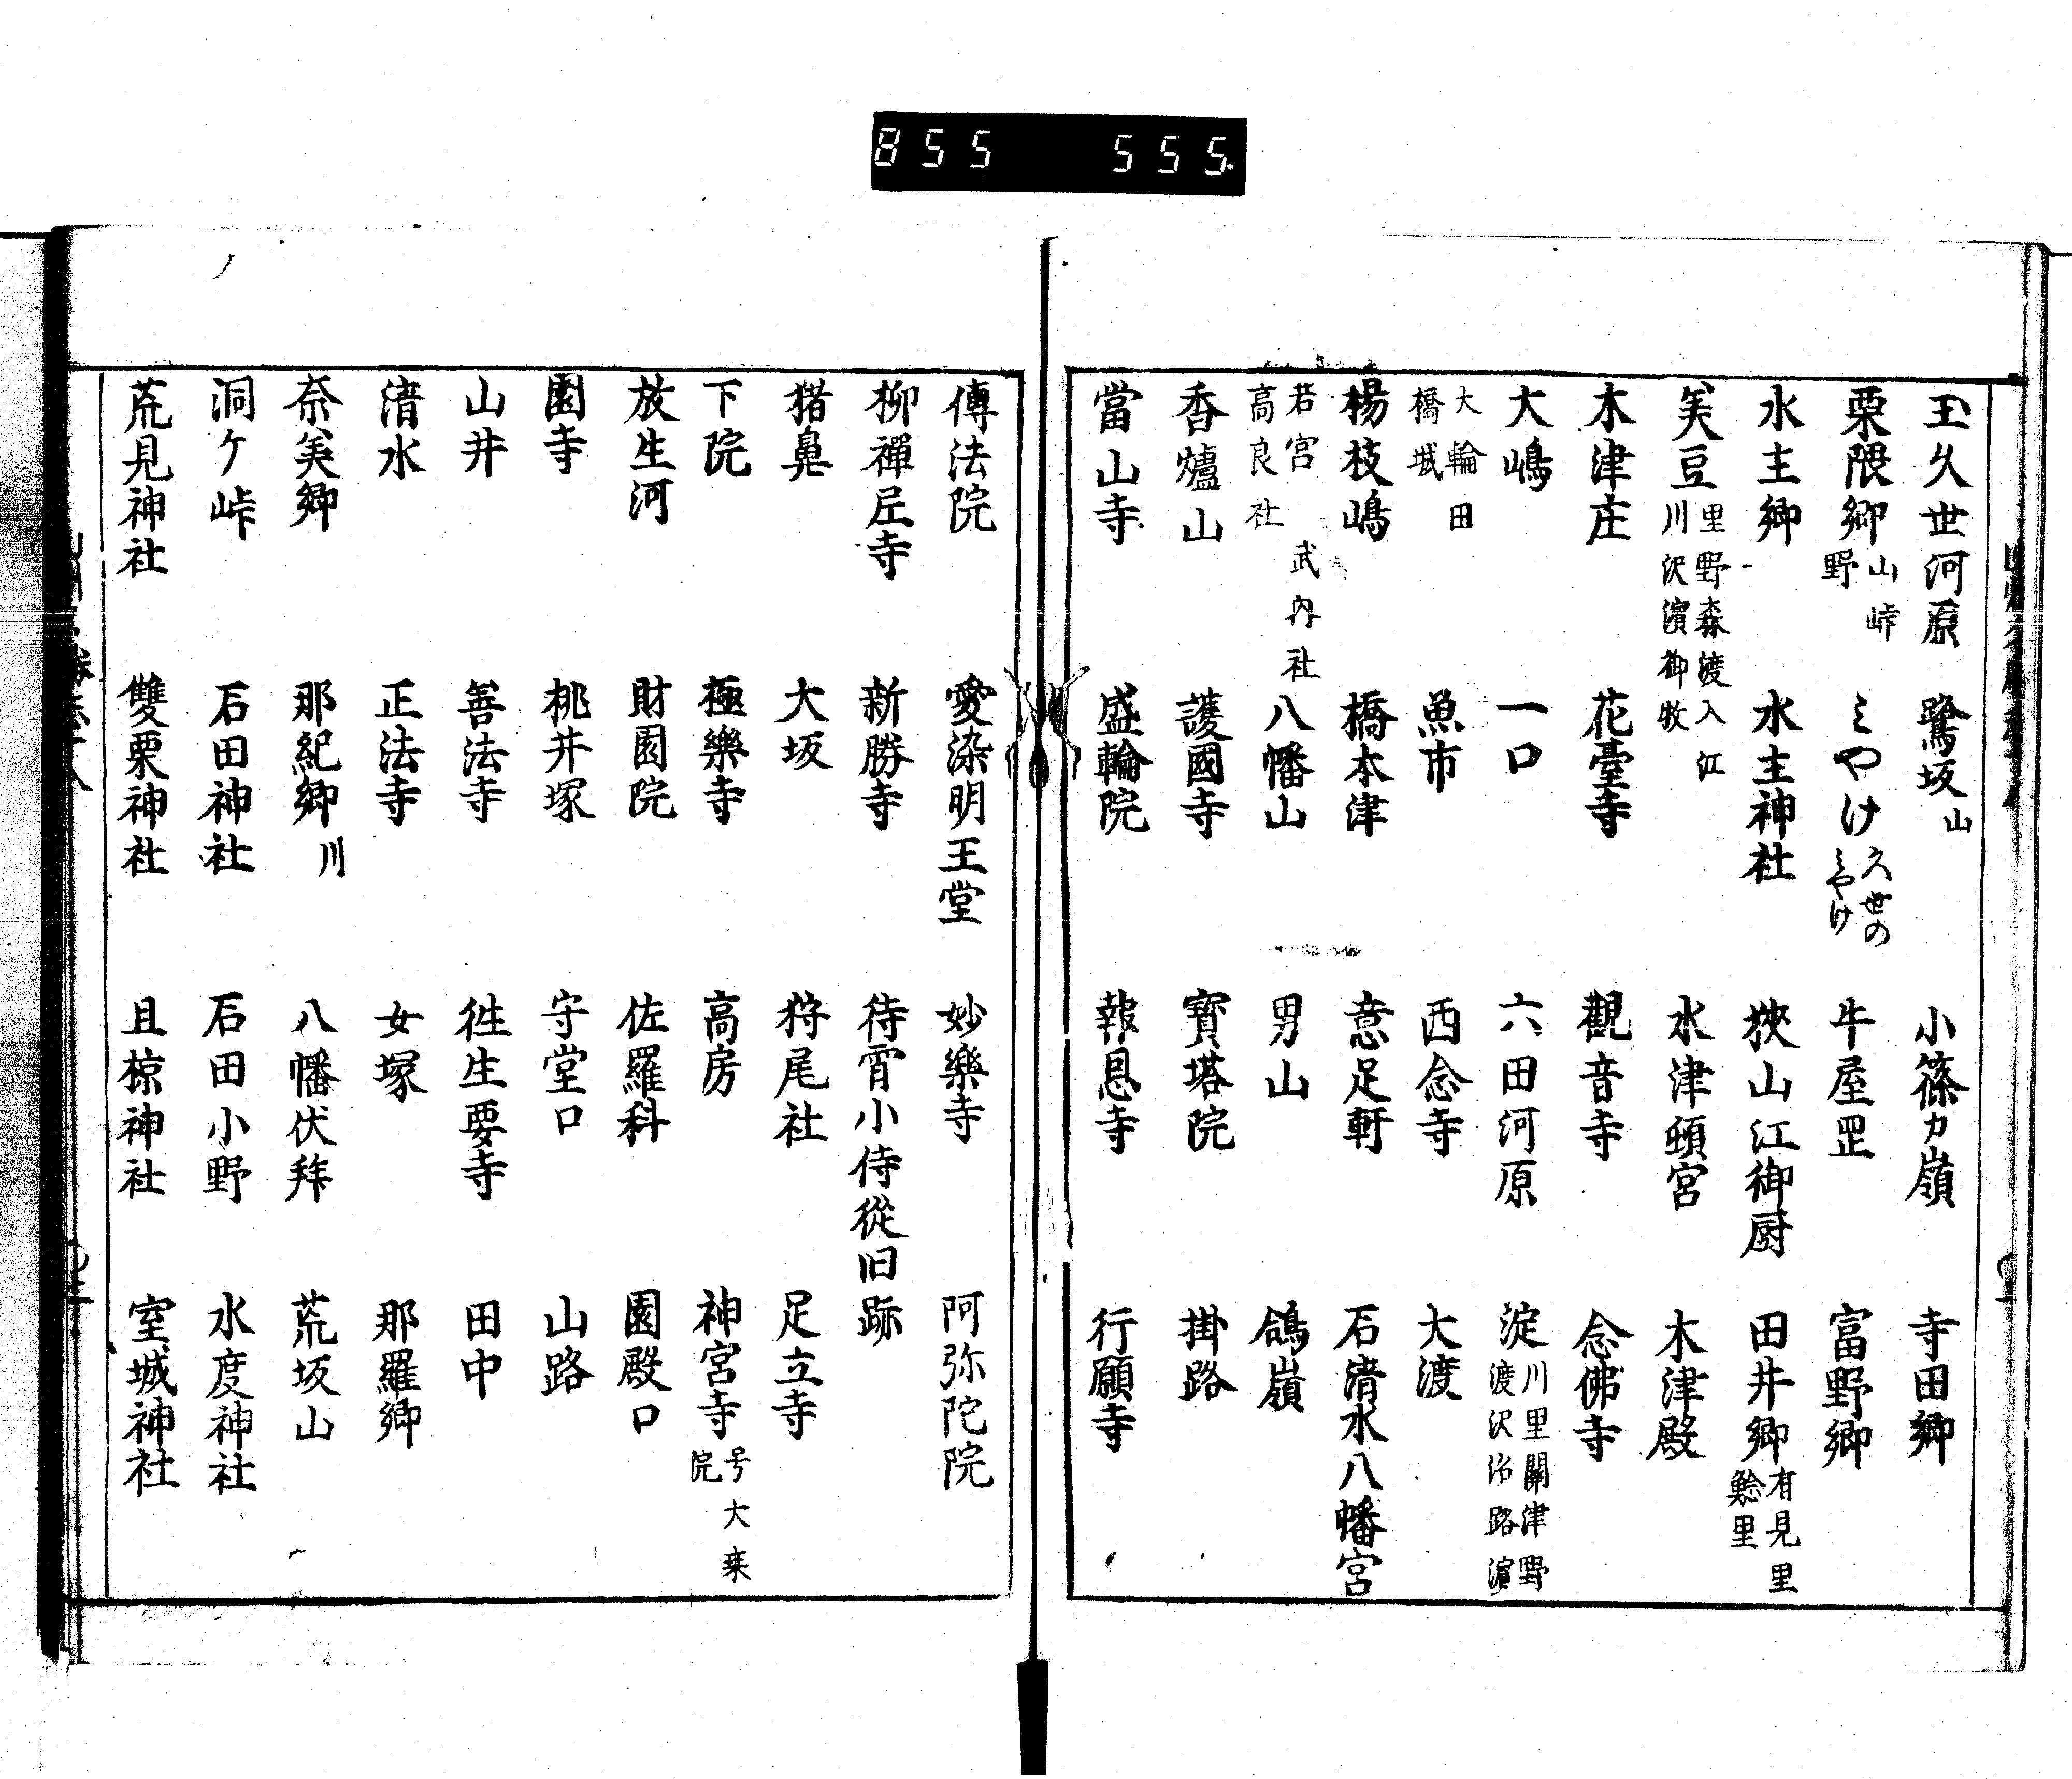 855 555
玉久世河原 鷺坂山 小篠カ嶺 寺田郷
栗隈郷 山峠野 ミやけ 久世のミやけ 牛屋罡 富野郷
水主郷 水主神社 狹山江御厨 田井郷 有見里鯰里
美豆 里野森渡入江川沢濵御牧 水津頓宮 木津殿
木津庄 花臺寺 觀音寺 念佛寺
大嶋 一口 六田河原 淀 川里關津野渡沢沿路濵
大輪田橋城 魚市 西念寺 大渡
楊枝嶋 橋本津 意足軒 石清水八幡宮
若宮 武内社高良社 八幡山 男山 鴿嶺
香爐山 護國寺 寳塔院 掛路
當山寺 盛輪院 報恩寺 行願寺
傳法院 愛染明王堂 妙樂寺 阿弥陀院
柳禪㞐寺 新勝寺 待宵小侍從旧跡
猪鼻 大坂 狩尾社 足立寺
下院 極樂寺 高房 神宮寺 号大乗院
放生河 財園院 佐羅科 園殿口
園寺 桃井塚 守堂口 山路
山井 善法寺 徃生要寺 田中
清水 正法寺 女塚 那羅郷
奈美郷 那紀郷川 八幡伏拜 荒坂山
洞ケ峠 石田神社 石田小野 水度神社
荒見神社 雙栗神社 且椋神社 室城神社